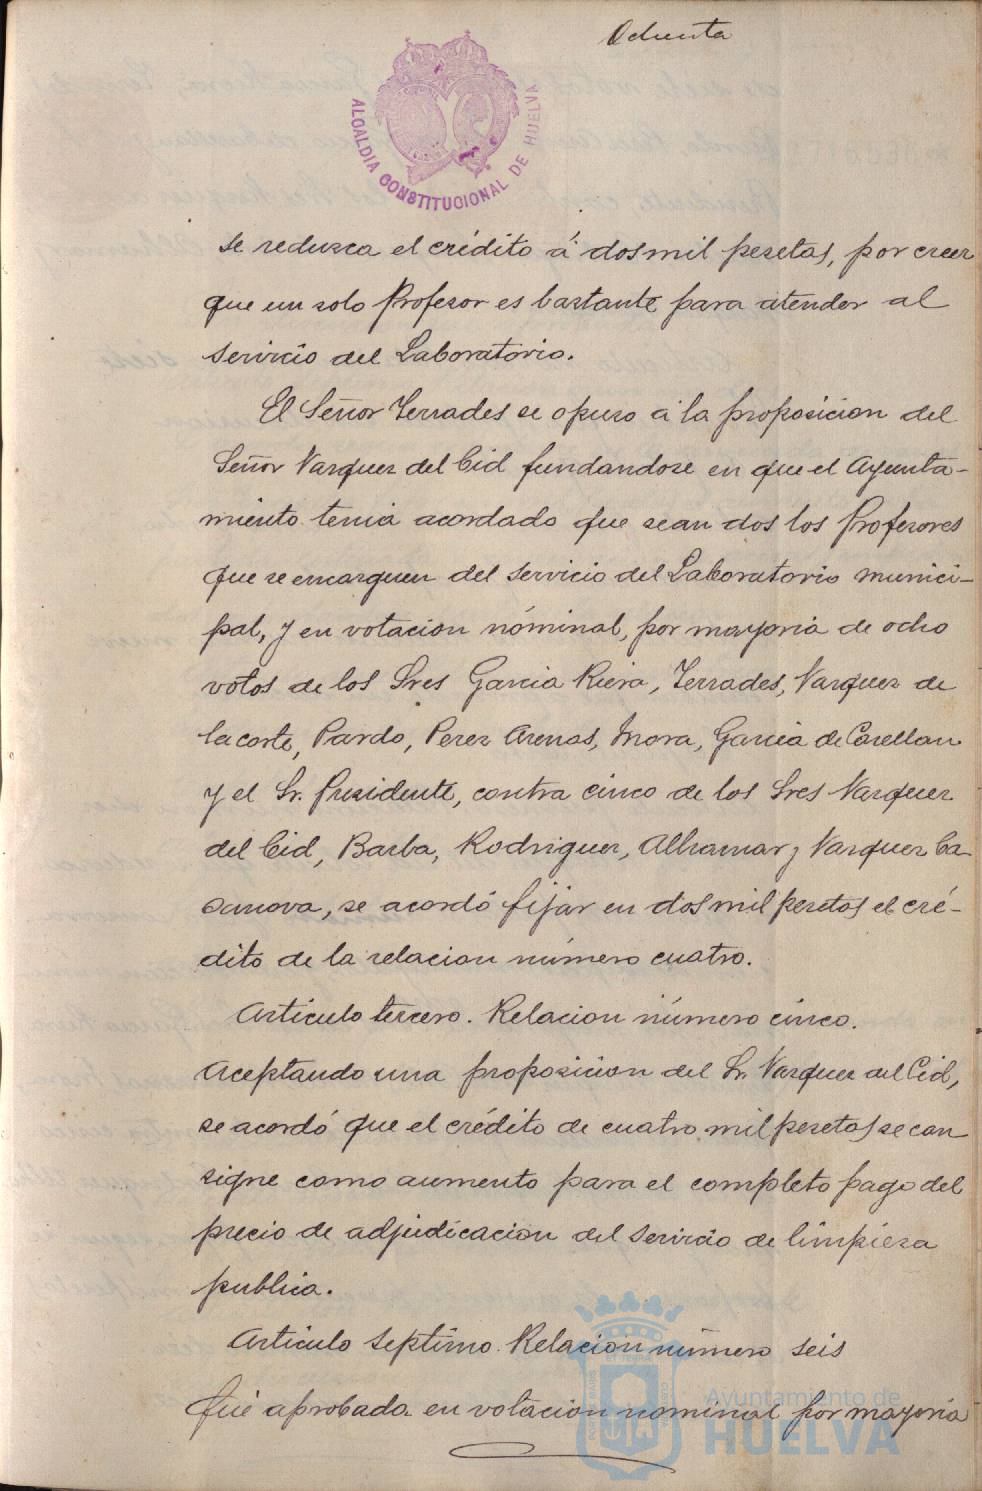 Ochenta
ALCALDIA CONSTITUCIONAL DE HUELVA
se reduzca el crédito á dos mil pesetas, por creer
que un solo Profesor es bastante para atender al
servicio del Laboratorio.
El Señor Terrades se opuso á la proposicion del
Señor Vazquez del Cid fundandose en que el Ayunta-
miento tenia acordado que sean dos los Profesores
que se encarguen del servicio del Laboratorio munici-
pal, y en votacion nóminal, por mayoria de ocho
votos de los Sres Garcia Riera, Terrades, Vazquez de
la corte, Pardo, Perez Arenas, Mora, Garcia de Casellan
y el Sr. Presidente, contra cinco de los Sres Vazquez
del Cid, Barba, Rodriguez, Albramar y Vazquez Ca-
sanova, se acordó fijar en dos mil pesetas el cré-
dito de la relacion número cuatro.
Articulo tercero. Relacion número cinco.
Aceptando una proposicion del Sr. Vazquez del Cid,
se acordó que el crédito de cuatro mil pesetas se con
signe como aumento para el completo pago del
precio de adjudicacion del servicio de limpieza
publica.
Articulo septimo. Relacion número seis
Fué aprobada en votacion nominal por mayoria
Ayuntamiento de
HUELVA